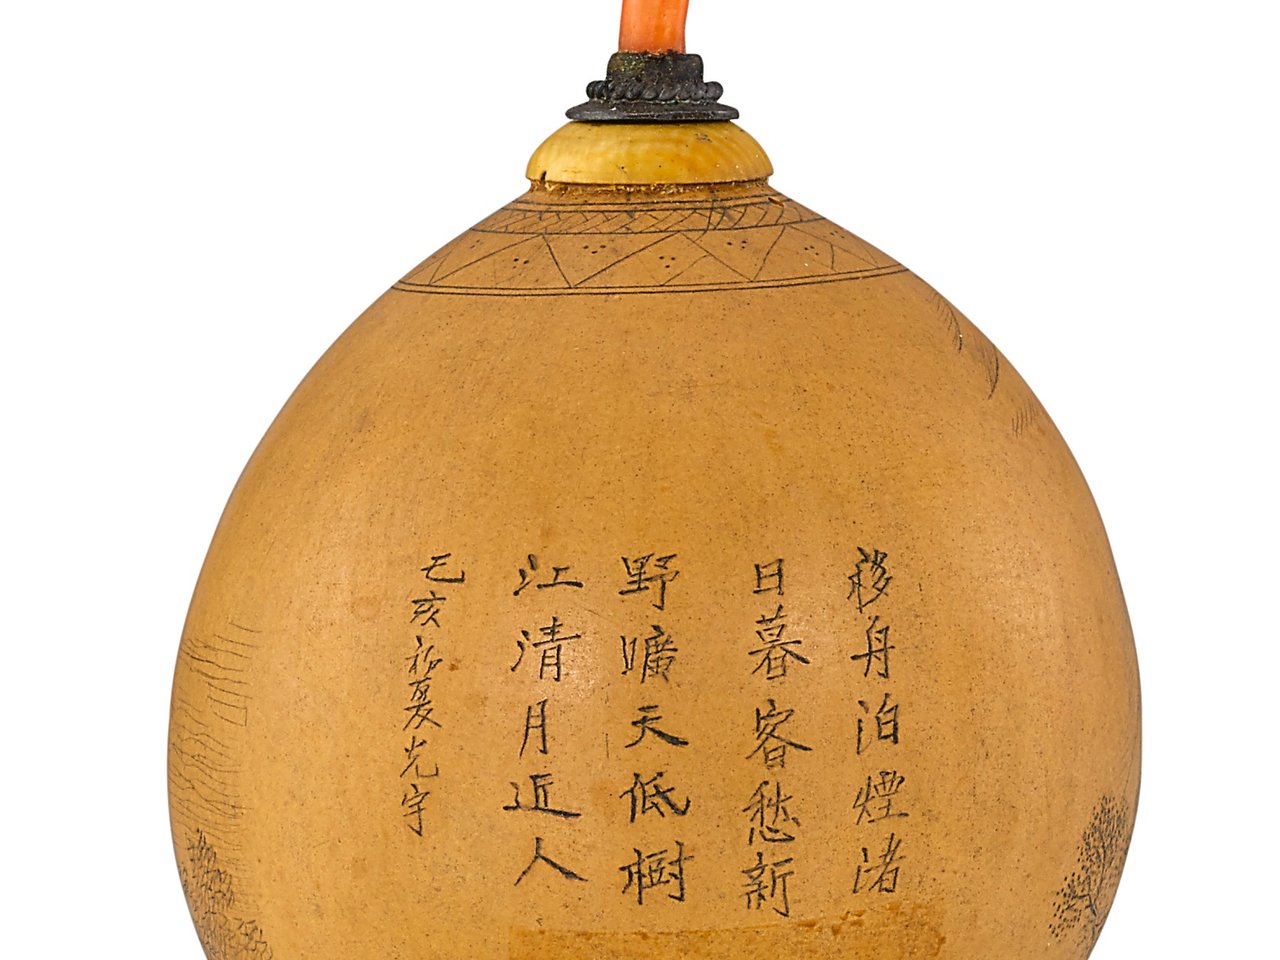 移舟泊煙渚
日暮客愁新
野曠天低樹
江清月近人
己亥初夏光宇